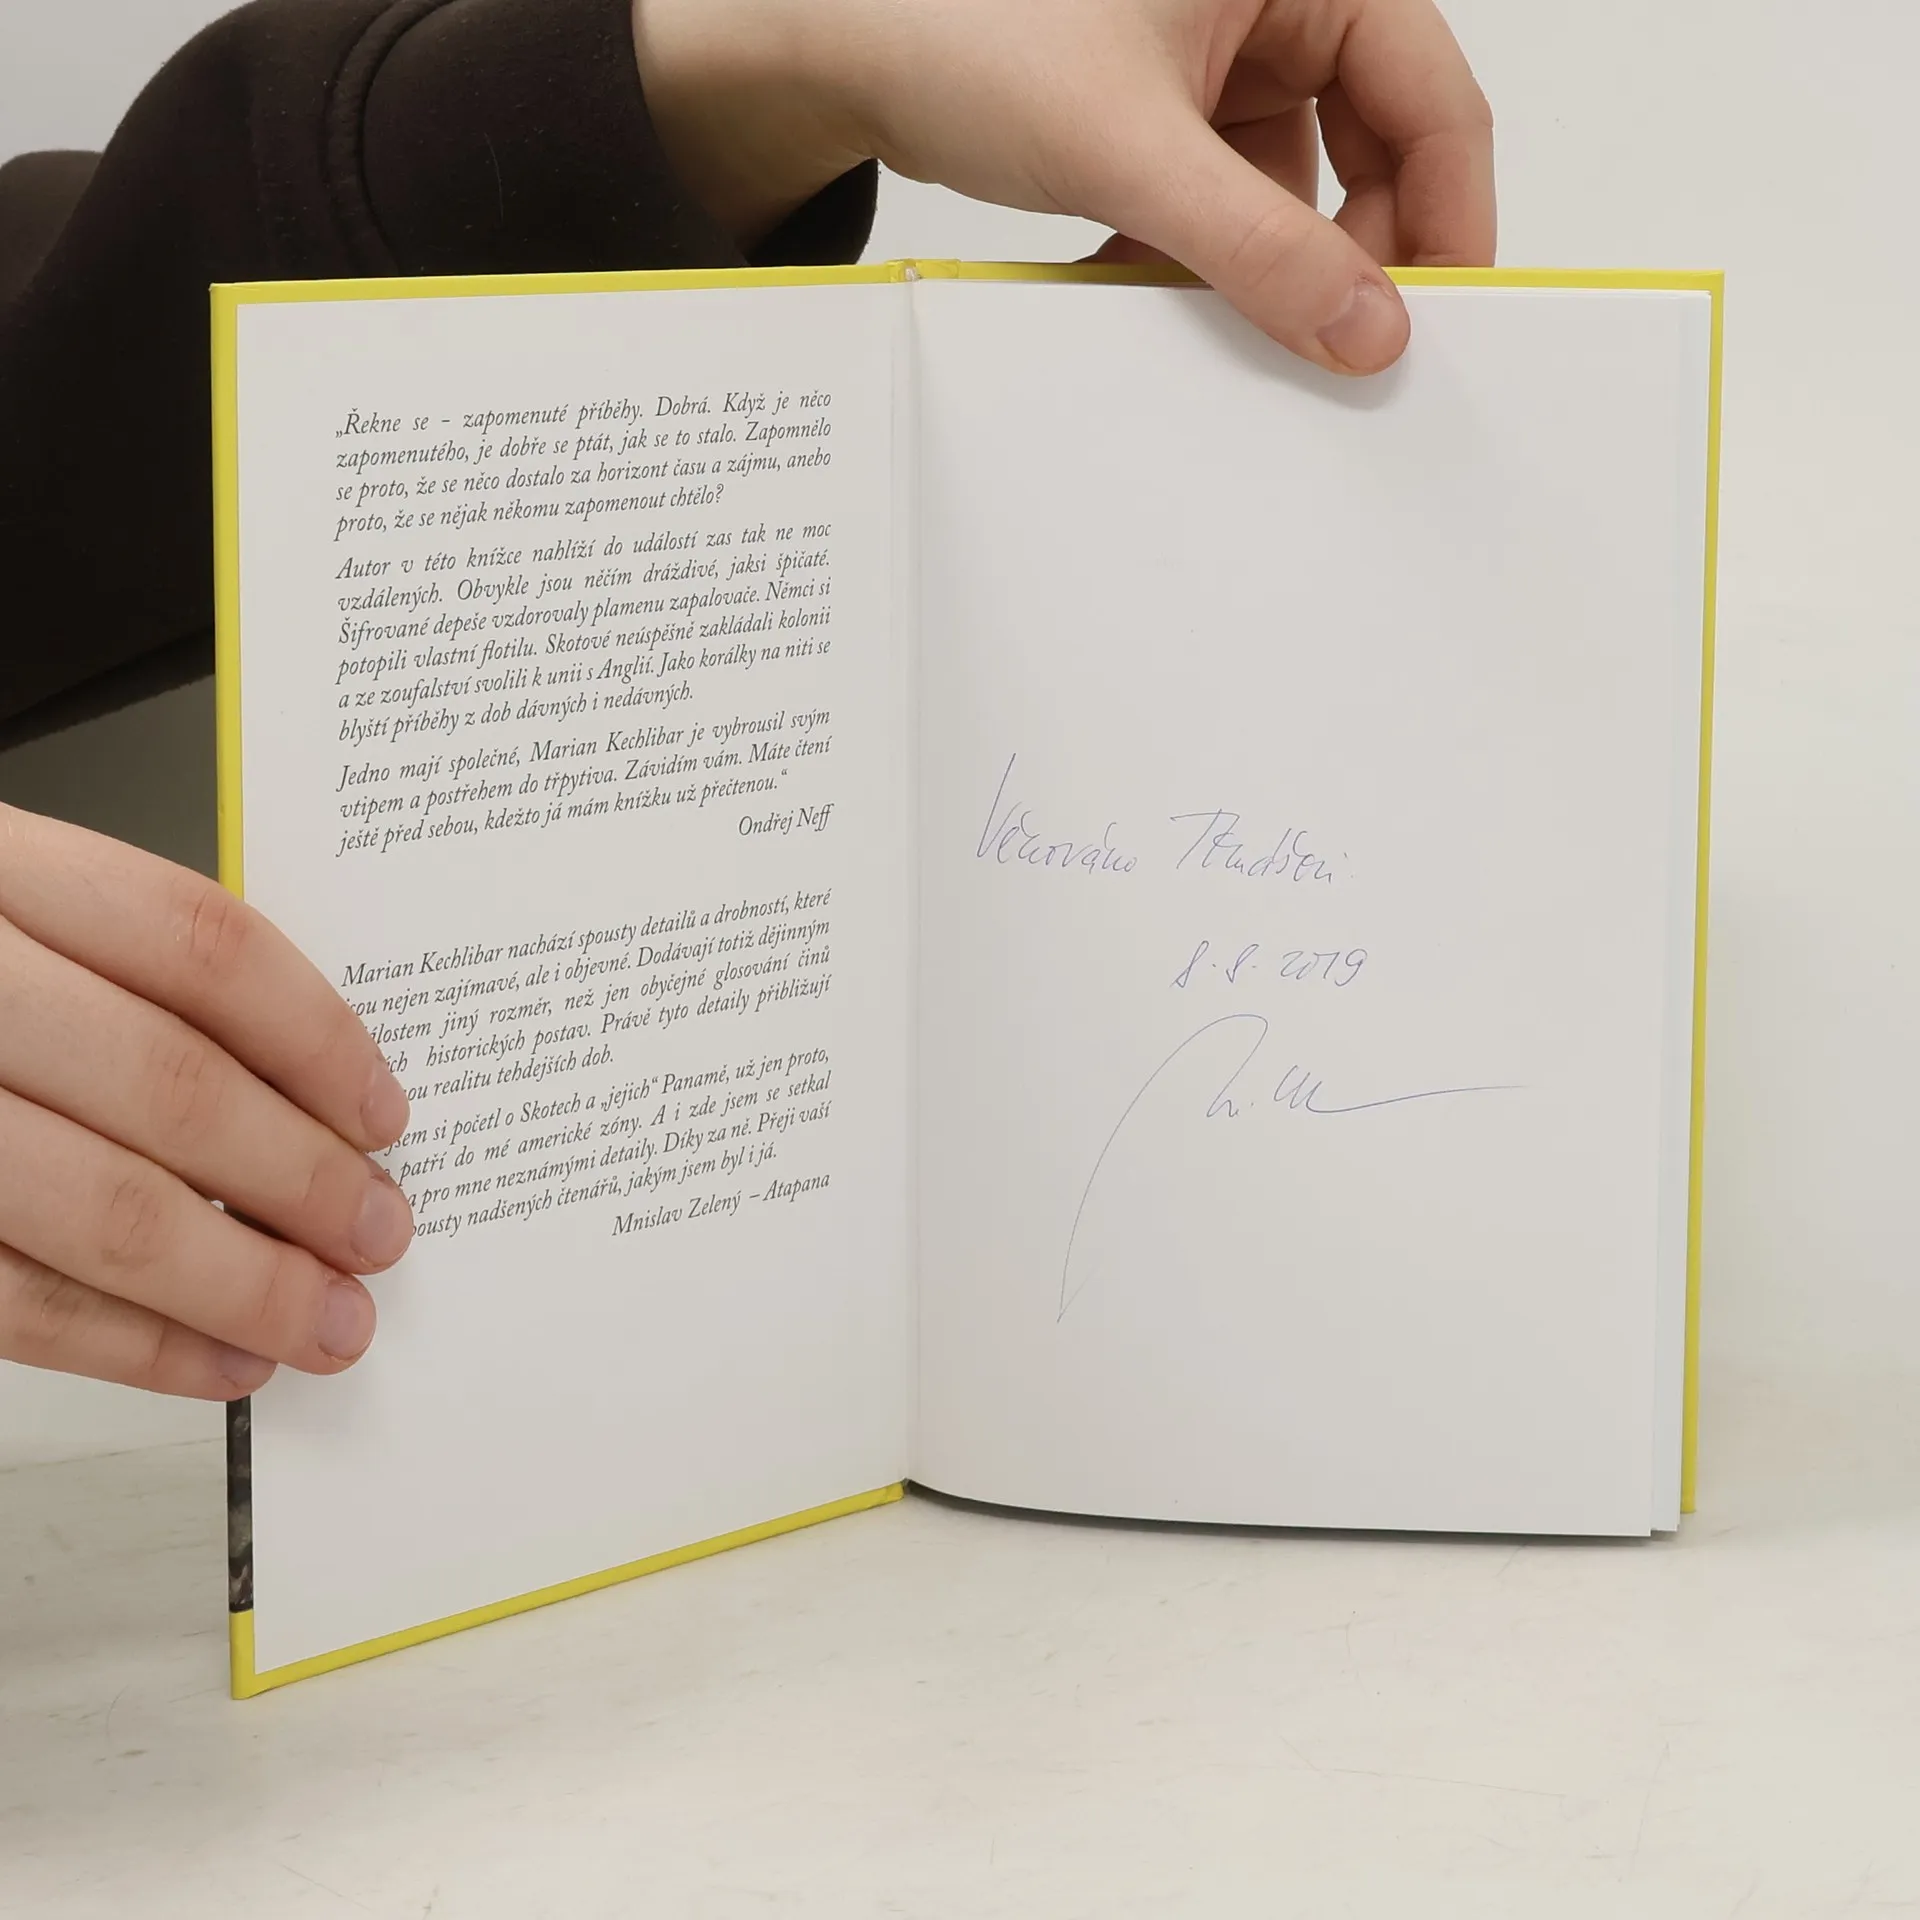 „Řekne se – zapomenuté příběhy. Dobrá. Když je něco
zapomenutého, je dobře se ptát, jak se to stalo. Zapomnělo
se proto, že se něco dostalo za horizont času a zájmu, anebo
proto, že se nějak někomu zapomenout chtělo?
Autor v této knížce nahlíží do událostí zas tak ne moc
vzdálených. Obvykle jsou něčím dráždivé, jaksi špičaté.
Šifrované depeše vzdorovaly plamenu zapalovače. Němci si
potopili vlastní flotilu. Skotové neúspěšně zakládali kolonii
a ze zoufalství svolili k unii s Anglií. Jako korálky na niti se
blyští příběhy z dob dávných i nedávných.
Jedno mají společné, Marian Kechlibar je vybrousil svým
vtipem a postřehem do třpytiva. Závidím vám. Máte čtení
ještě před sebou, kdežto já mám knížku už přečtenou.“
Ondřej Neff
Marian Kechlibar nachází spousty detailů a drobností, které
jsou nejen zajímavé, ale i objevné. Dodávají totiž dějinným
jiný rozměr, než jen obyčejné glosování činů
historických postav. Právě tyto detaily přibližují
realitu tehdejších dob.
jsem si početl o Skotech a „jejich“ Panamě, už jen proto,
patří do mé americké zóny. A i zde jsem se setkal
a pro mne neznámými detaily. Díky za ně. Přeji vaší
nadšených čtenářů, jakým jsem byl i já.
Mnislav Zelený – Atapana
Věnováno
8. 8. 2019